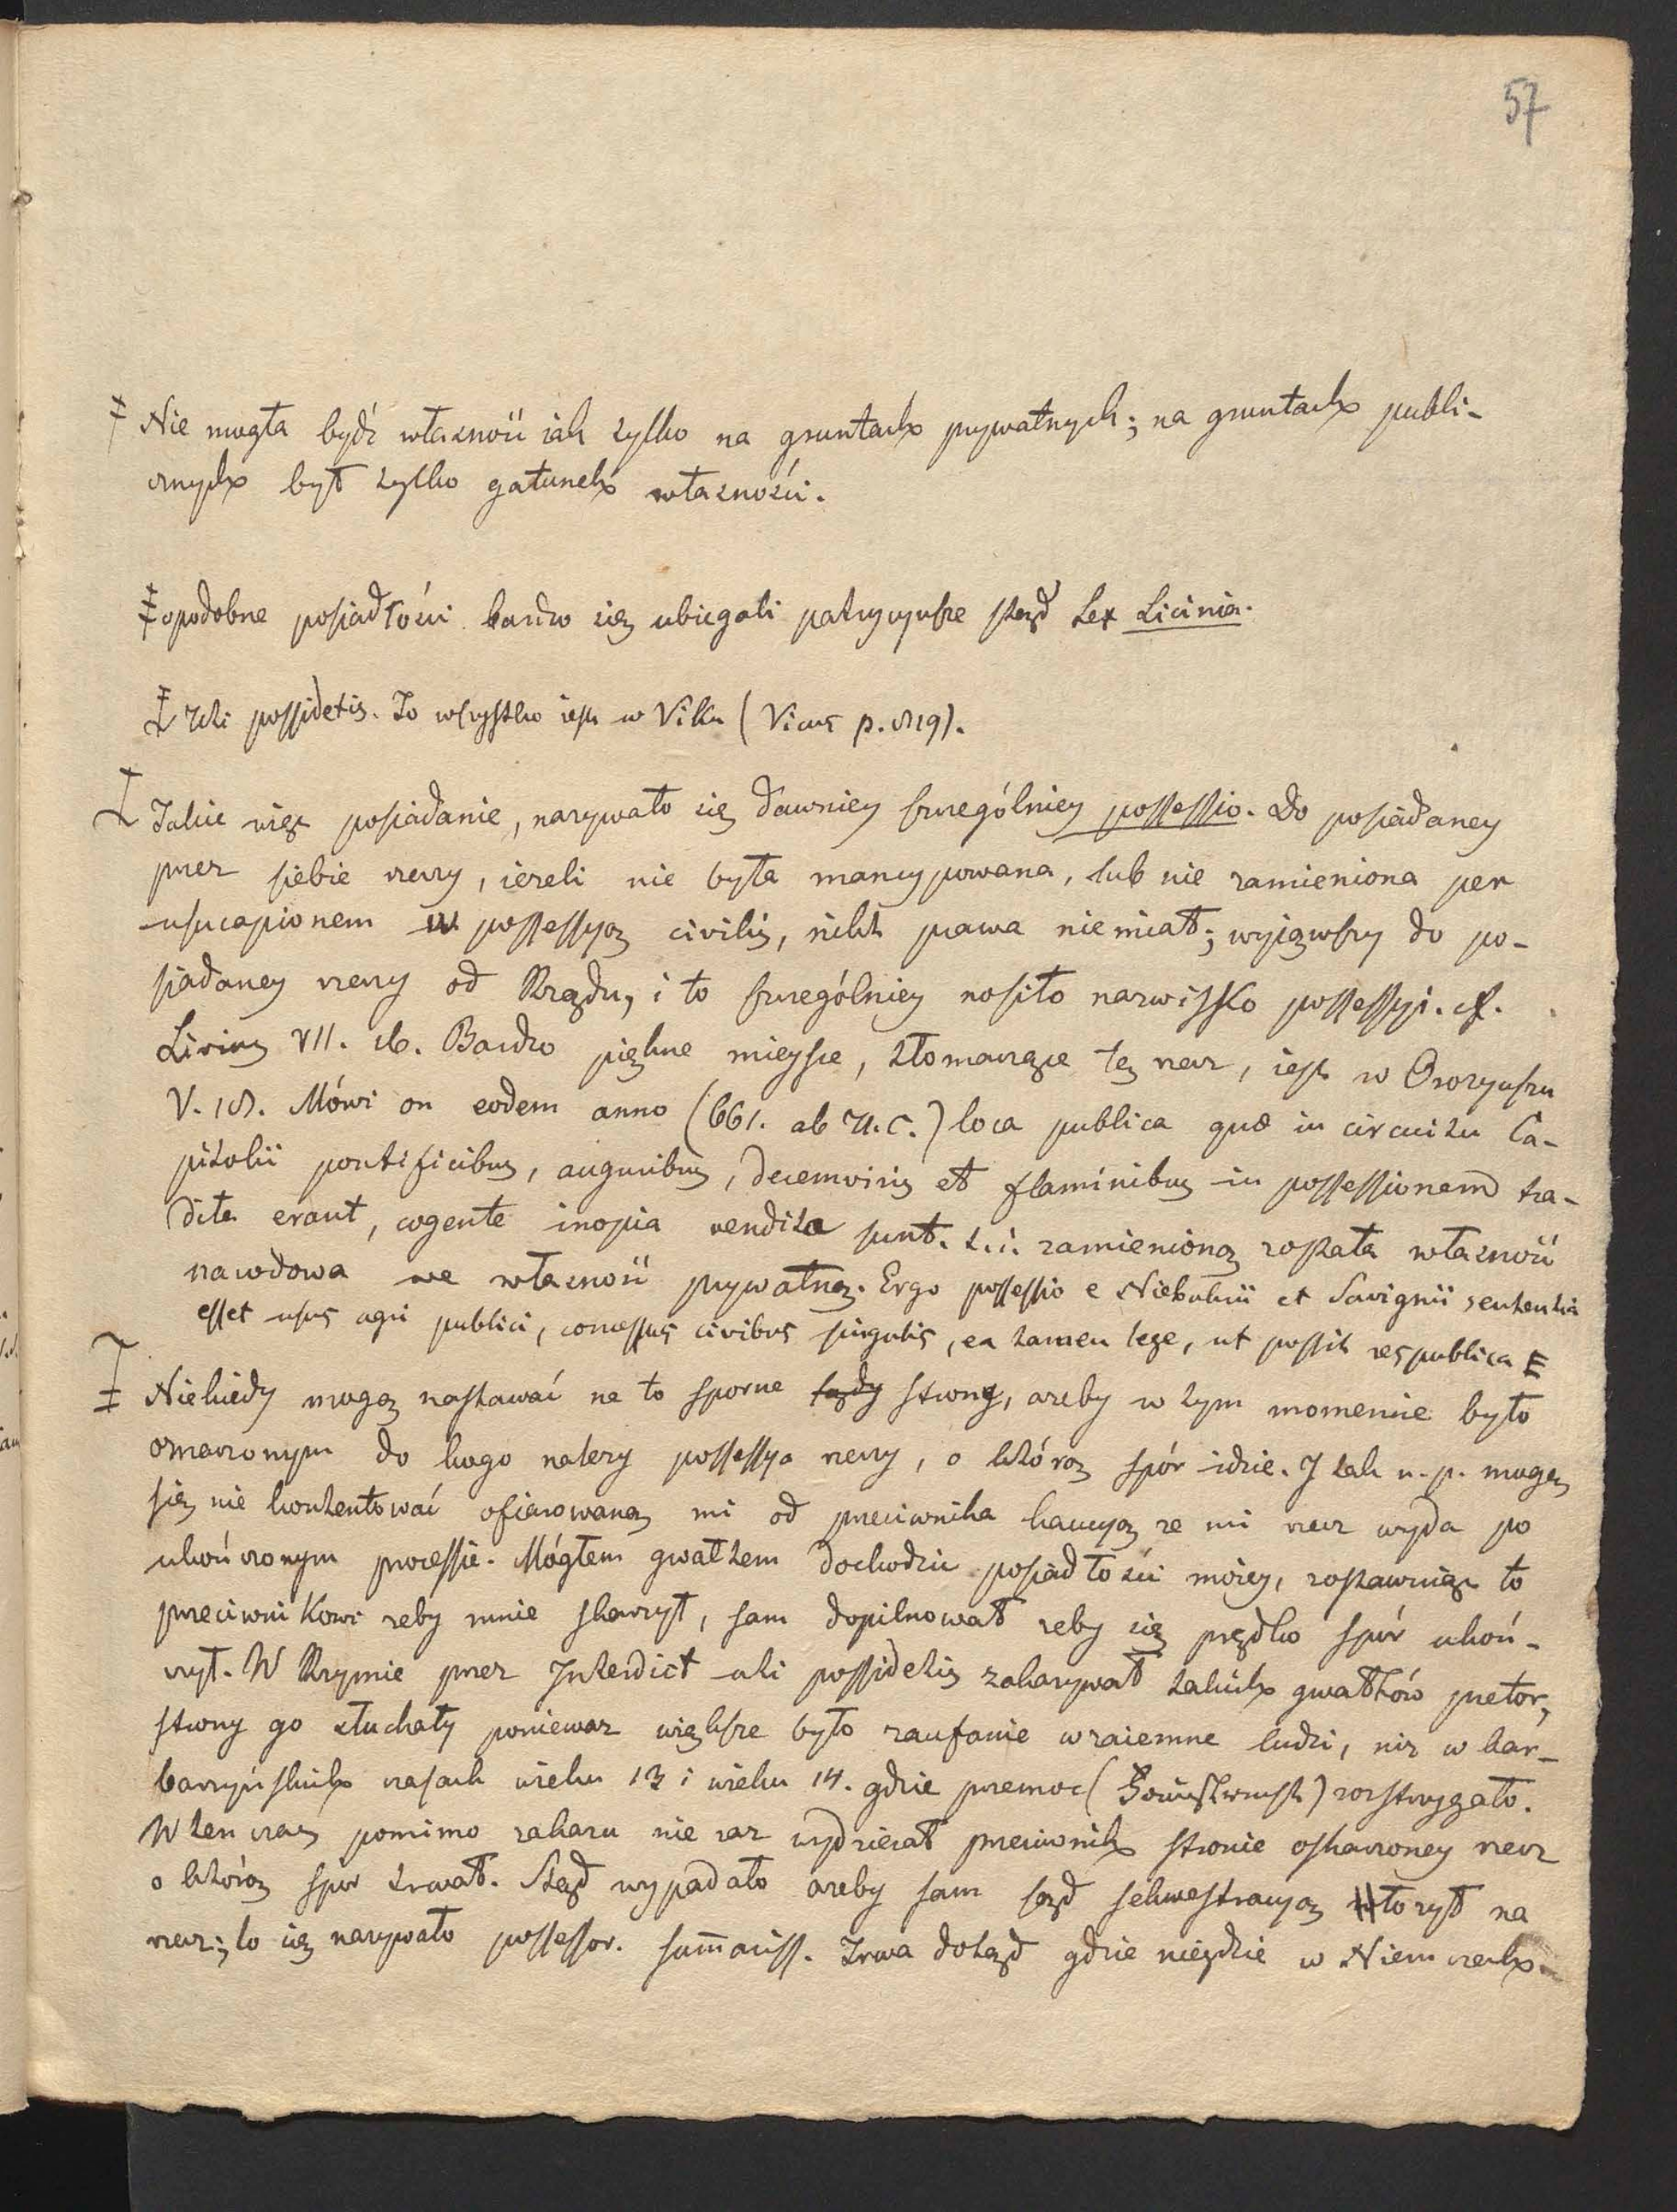 57
Nie mogła bydź własność iak tylko na gruntach prywatnych; na gruntach publi-
cznych był tylko gatunek własności.
o podobne posiadłości bardzo się ubiegali patrycyusze ztąd Lex Licinia.
Uti possidetis. To wszystko iest w Viku (Vicus p. 819).
Takie więc posiadanie, nazywało się dawniey szczególniey possessio. Do posiadaney
przez siebie rzeczy, ieżeli nie była mancypowana, lub nie zamieniona per
usucapionem w possessyą civilis, nikt prawa nie miał; wyiąwszy do po-
siadaney rzeczy od Rządu, i to szczególniey nosiło nazwisko possessyi. cf.
Livius VII. 16. Bardzo piękne mieysce, tłomaczące tę rzecz, iest w Orozyuszu
V. 18. Mówi on eodem anno (661. ab U.C.) loca publica quæ in circuitu Ca-
pitolii pontificibus, auguribus, decemviris et flaminibus in possessionem tra-
dita erant, cogente inopia vendita sunt. t.i. zamienioną została własność
narodowa we własność prywatną. Ergo possessio e Niebuhrii et Savignii sententia
esset usus agri publici, concessus civibus singulis, ea tamen lege, ut possit respublica E
Niekiedy mogą nastawać na to sporne sądy strony, ażeby w tym momencie było
oznaczonym do kogo należy possessya rzeczy, o którą spór idzie. I tak n.p. mogę
się nie kontentować ofiarowaną mi od przeciwnika kaucyą że mi rzecz wyda po
ukończonym processie. Mógłem gwałtem dochodzić posiadłości moiey, zostawuiąc to
przeciwnikowi żeby mnie skarżył, sam dopilnował żeby się prędko spór ukoń-
czył. W Rzymie przez Interdict uti possidetis zakazywał takich gwałtów pretor,
strony go słuchały ponieważ większe było zaufanie wzaiemne ludzi, niż w bar-
barzyńskich czasach wieku 13 i wieku 14. gdzie przemoc (Faustrecht) rozstrzygało.
W ten czas pomimo zakazu nie raz wydzierał przeciwnik stronie oskarżoney rzecz
o którą spór trwał. Ztąd wypadało ażeby sam sąd sekwestracyą łożył na
rzecz; to się nazywało possessor. sum̄ariss. Trwa dotąd gdzie niegdzie w Niemczech.